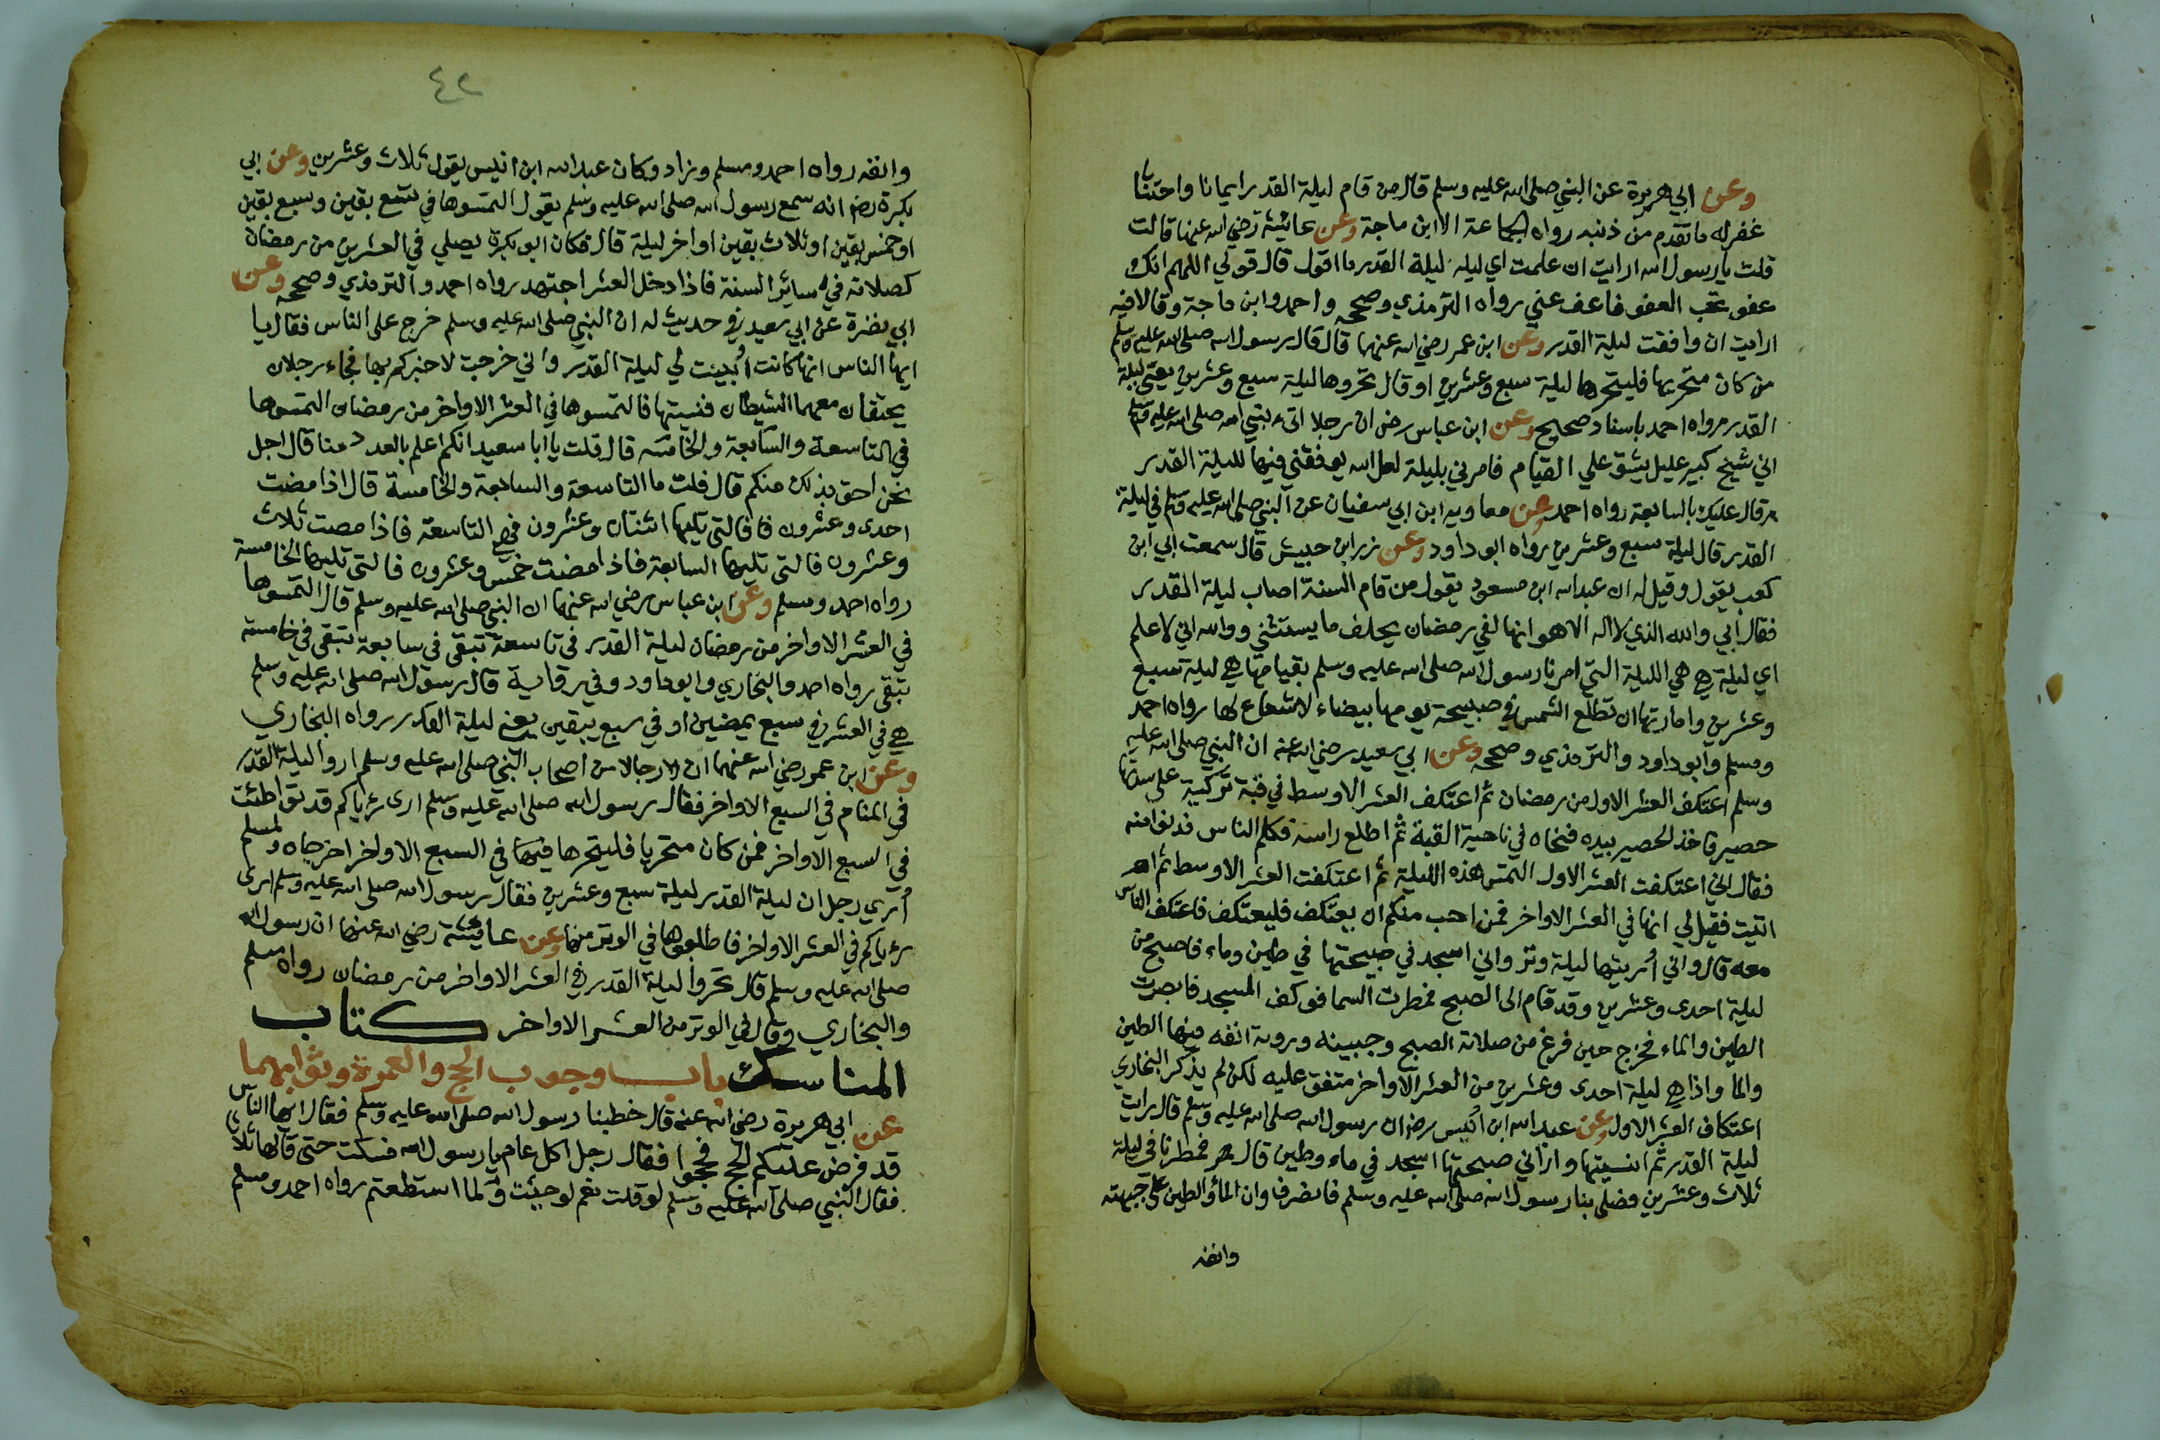 وعن ابي هريرة عن النبي صلى الله عليه وسلم قال من قام ليلة القدر ايمانا واحتسابا
غفرله ما تقدم من ذنبه رواه الجماعة الا ابن ماجة وعن عائشة رضي الله عنها قالت
قلت يا رسول الله ارايت ان علمت اي ليله ليلة القدر ما اقول قال قولي اللهم انك
عفو تحب العفو فاعف عني رواه الترمذي وصححه واحمد وابن ماجة وقالا فيه
ارايت ان وافقت ليلة القدر وعن ابن عمر رضي الله عنهما قال قال رسول الله صلى الله عليه وسلم
من كان متحريها فليتحرها ليلة سبع وعشرين او قال تحروها ليلة سبع وعشرين يعني ليلة
القدر رواه احمد باسناد صحيح وعن ابن عباس رض ان رجلا اتى نبي الله صلى الله عليه وسلم
اني شيخ كبير عليل يشق علي القيام فامرني بليلة لعل الله يوفقني فيها لليلة القدر
قال عليك بالسابعة رواه احمد وعن معاويه ابن ابي سفيان عن النبي صلى الله عليه وسلم في ليلة
القدر قال ليلة سبع وعشرين رواه ابو داود وعن زر ابن حبيش قال سمعت ابي ابن
كعب يقول وقيل له ان عبد الله ابن مسعود يقول من قام السنة اصاب ليلة القدر
فقال ابي والله الذي لا اله الا هو انها لفي رمضان يحلف ما يستثني ووالله اني لاعلم
اي ليلة هي هي الليلة التي امرنا رسول الله صلى الله عليه وسلم بقيامها هي ليلة سبع
وعشرين وامارتها ان تطلع الشمس في صبيحة يومها بيضاء لا شعاع لها رواه احمد
ومسلم وابو داود والترمذي وصححه وعن ابي سعيد رضي الله عنه ان النبي صلى الله عليه
وسلم اعتكف العشر الاول من رمضان ثم اعتكف العشر الاوسط في قبة تركية على سدتها
حصير فاخذ الحصير بيده فنحاه في ناحية القبة ثم اطلع راسه فكلم الناس فدنوا منه
فقال اني اعتكفت العشر الاول التمس هذه الليلة ثم اعتكفت العشر الاوسط ثم
اتيت فقيل لي انها في العشر الاواخر فمن احب منكم ان يعتكف فليعتكف فاعتكف الناس
معه قال واني اريتها ليلة وتر واني اسجد في صبيحتها في طين وماء فاصبح من
ليلة احدى وعشرين وقد قام الى الصبح فمطرت السما فوكف المسجد فابصرت
الطين والماء فخرج حين فرغ من صلاة الصبح وجبينه وروثة انفه فيها الطين
والما واذا هي ليلة احدى وعشرين من العشر الاواخر متفق عليه لكن لم يذكر البخاري
اعتكاف العشر الاول وعن عبد الله ابن انيس رض ان رسول الله صلى الله عليه وسلم قال رايت
ليلة القدر ثم انسيتها واراني صبيحتها اسجد في ماء وطين قال فمطرنا في ليلة
ثلاث وعشرين فصلى بنا رسول الله صلى الله عليه وسلم فانصرف وان الماء والطين على جبهته
وانفه
٤٢
وانفه رواه احمد ومسلم وزاد وكان عبد الله ابن انيس يقول ثلاث وعشرين وعن ابي
بكرة رض انه سمع رسول الله صلى الله عليه وسلم يقول التمسوها في تسع بقين وسبع بقين
او خمس بقين او ثلاث بقين او اخر ليلة قال فكان ابو بكرة يصلي في العشرين من رمضان
كصلاته في سائر السنة فاذا دخل العشر اجتهد رواه احمد والترمذي وصححه وعن
ابي نضرة عن ابي سعيد في حديث له ان النبي صلى الله عليه وسلم خرج على الناس فقال يا
ايها الناس انها كانت أبينت لي ليلة القدر واني خرجت لاخبركم بها فجاء رجلان
يحتقان معهما الشيطان فنسيتها فالتمسوها في العشر الاواخر من رمضان التمسوها
في التاسعة والسابعة والخامسة قال قلت يا ابا سعيد انكم اعلم بالعدد منا قال اجل
نحن احق بذلك منكم قال قلت ما التاسعة والسابعة والخامسة قال اذا مضت
احدى وعشرون فالتي تليها اثنتان وعشرون فهي التاسعة فاذا مضت ثلاث
وعشرون فالتي تليها السابعة فاذا مضت خمس وعشرون فالتي تليها الخامسة
رواه احمد ومسلم وعن ابن عباس رضي الله عنهما ان النبي صلى الله عليه وسلم قال التمسوها
في العشر الاواخر من رمضان ليلة القدر في تاسعة تبقى في سابعة تبقى في خامسة
تبقى رواه احمد والبخاري وابو داود وفي رواية قال رسول الله صلى الله عليه وسلم
هي في العشر في سبع يمضين او في سبع يبقين يعني ليلة القدر رواه البخاري
وعن ابن عمر رضي الله عنهما ان رجالا من اصحاب النبي صلى الله عليه وسلم اروا ليلة القدر
في المنام في السبع الاواخر فقال رسول الله صلى الله عليه وسلم ارى رءياكم قد تواطئت
في السبع الاواخر فمن كان متحريا فليتحرها فيها في السبع الاواخر اخرجاه ولمسلم
أري رجل ان ليلة القدر ليلة سبع وعشرين فقال رسول الله صلى الله عليه وسلم ارى
رءياكم في العشر الاواخر فاطلبوها في الوتر منها وعن عائشة رضي الله عنها ان رسول الله
صلى الله عليه وسلم قال تحروا ليلة القدر في العشر الاواخر من رمضان رواه مسلم
والبخاري وقال في الوتر من العشر الاواخر كتاب
المناسك باب وجوب الحج والعمرة وثوابهما
عن ابي هريرة رضي الله عنه قال خطبنا رسول الله صلى الله عليه وسلم فقال ايها الناس
قد فرض عليكم الحج فحجوا فقال رجل اكل عام يا رسول الله فسكت حتى قالها ثلاثا
فقال النبي صلى الله عليه وسلم لو قلت نعم لوجبت ولما استطعتم رواه احمد ومسلم